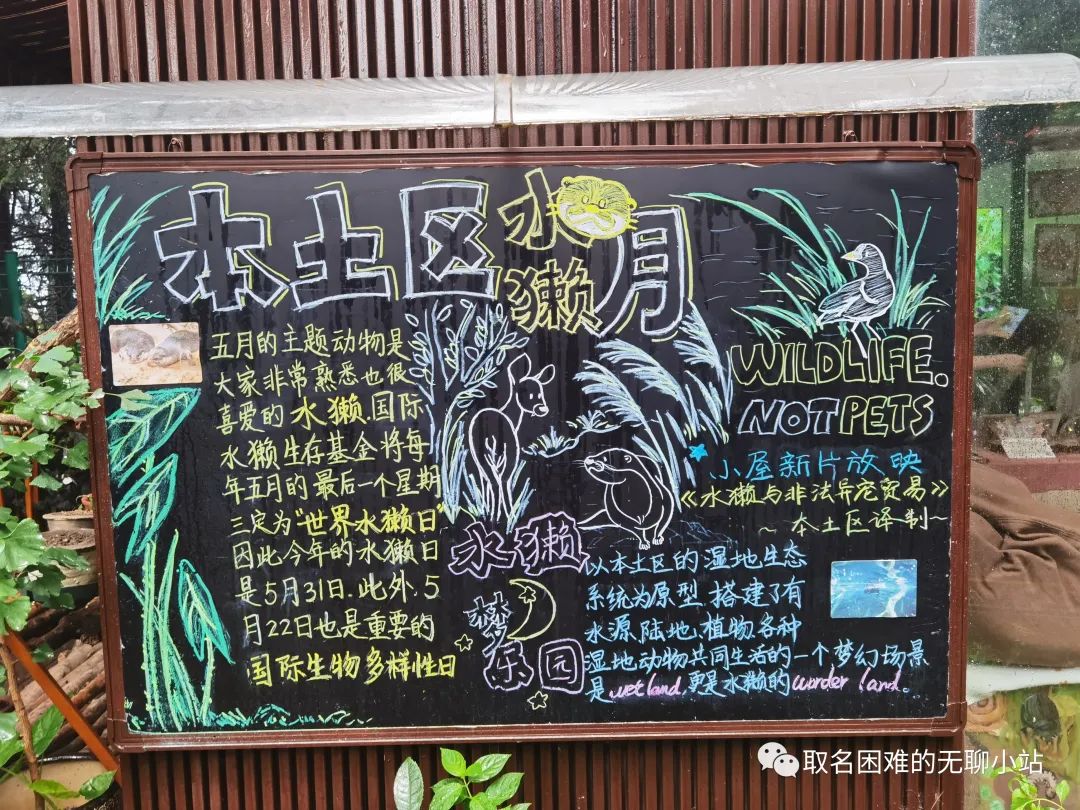 本土区水獭月
五月的主题动物是
大家非常熟悉也很
喜爱的水獭.国际
水獭生存基金将每
年五月的最后一个星期
三定为"世界水獭日"
因此今年的水獭日
是5月31日.此外.5
月22日也是重要的
国际生物多样性日
WILDLIFE.
NOT PETS
小屋新片放映
《水獭与非法异宠贸易》
~本土区译制~
水獭
梦
乐园
以本土区的湿地生态
系统为原型.搭建了有
水源.陆地.植物.各种
湿地动物共同生活的一个梦幻场景
是wetland.更是水獭的wonder land.
取名困难的无聊小站